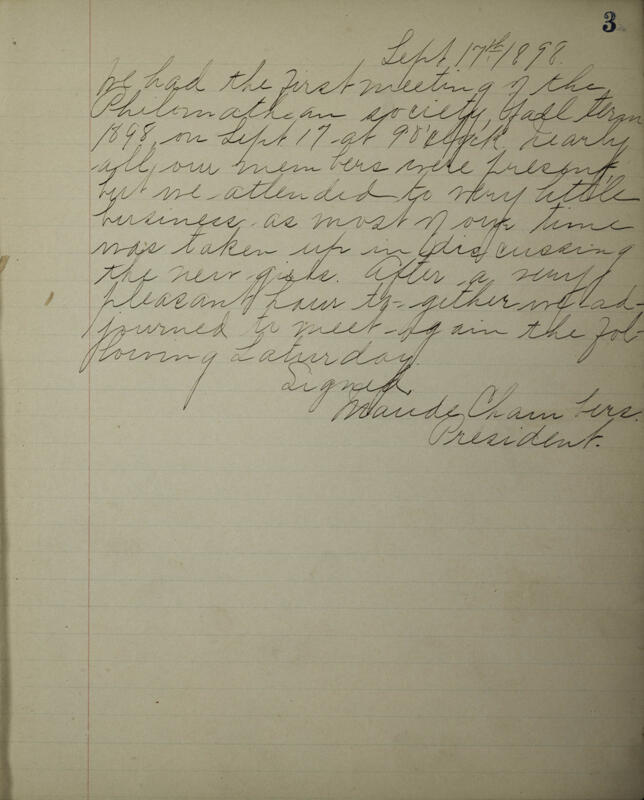 3
Sept 17th 1898.
We had the first meeting of the
Philomathean society, fall term
1898, on Sept 17 at 9 o'clock nearly
all our members were present
but we attended to very little
business as most of our time
was taken up in discussing
the new girls. After a very
pleasant hour to-gether we ad-
journed to meet again the fol-
lowing Saturday.
Signed,
Maude Chambers.
President.